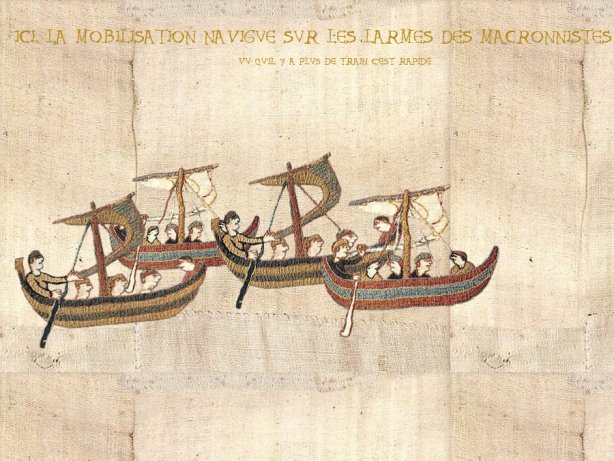 ICI, LA MOBILISATION NAVIGVE SVR LES LARMES DES MACRONNISTES
VV QV'IL Y A PLVS DE TRAIN C'EST RAPIDE